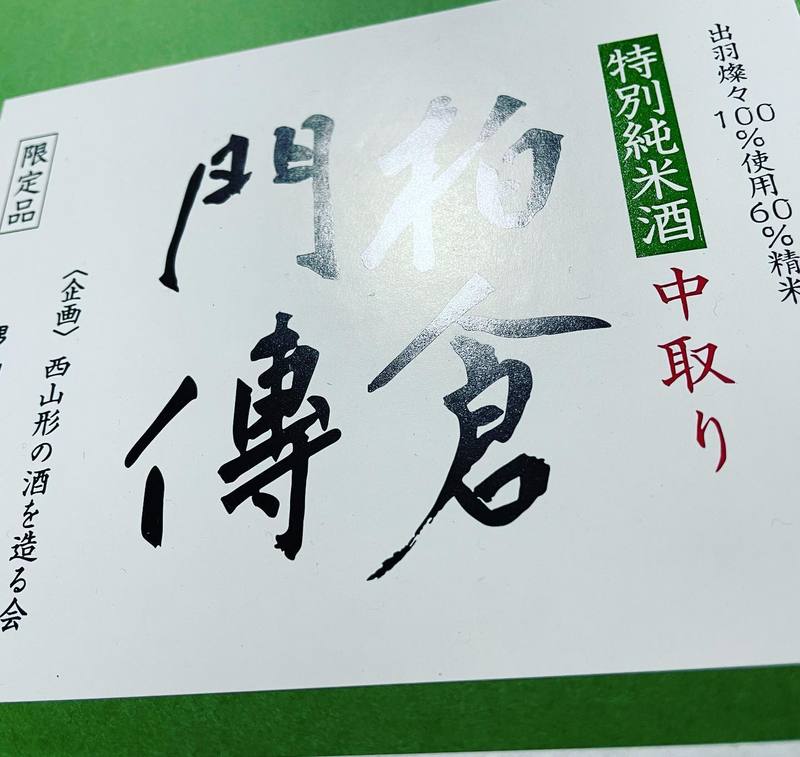 出羽燦々100%使用60%精米
特別純米酒
中取り
柏倉
門傳
限定品
〈企画〉西山形の酒を造る会